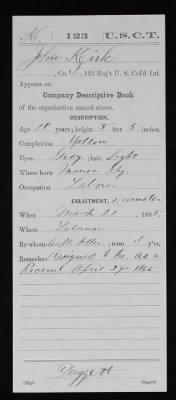 K. 123 U.S.C.T.
John Kirk
, Co. , 123 Reg't U. S. Col'd Inf.
Appears on
Company Descriptive Book
of the organization named above.
DESCRIPTION.
Age 18 years; height 5 feet 3 inches.
Complexion Yellow
Eyes Grey; hair Light
Where born Ky.
Occupation Laborer
ENLISTMENT.
When March 21, 1865.
Where Lebanon
By whom Capt. ; term 3 y'rs.
Remarks: Assigned to Co. as a
Recruit April 29 1865
Copyist.